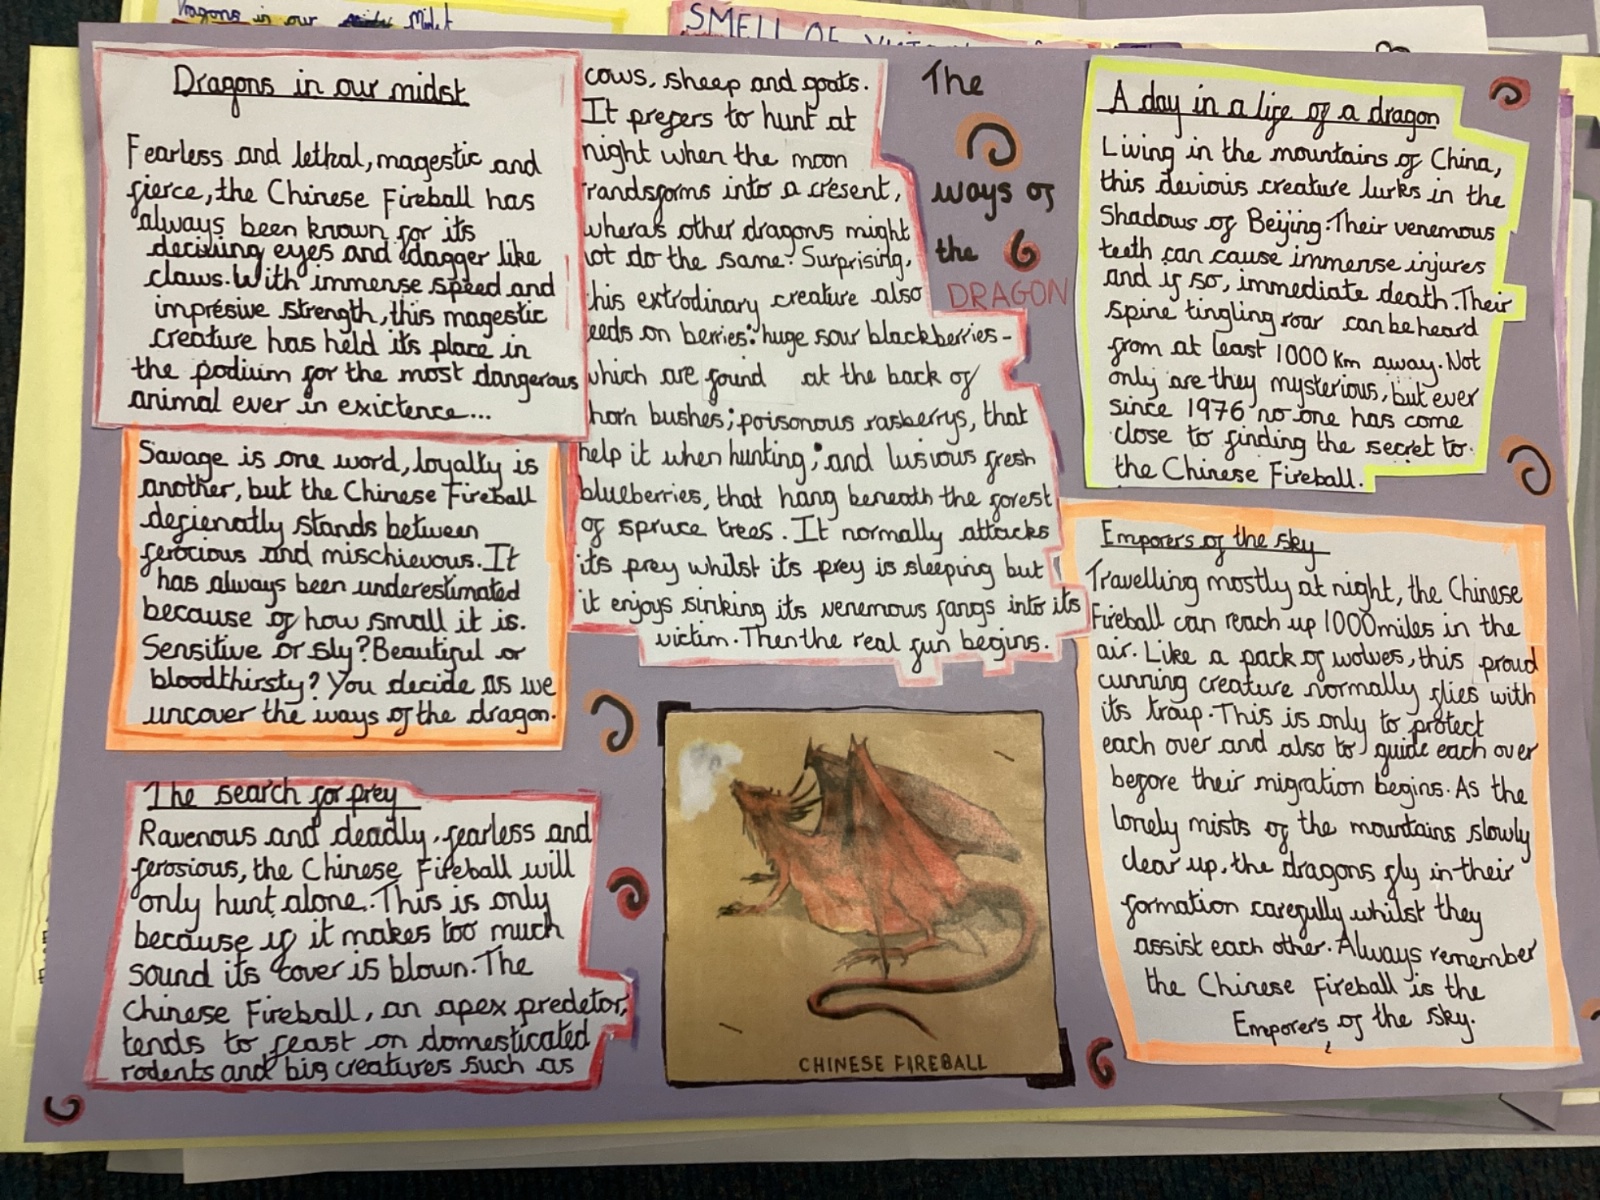 Dragons in our midst
SMELL OF
Dragons in our midst
Fearless and lethal, magestic and
fierce, the Chinese Fireball has
always been known for its
deciving eyes and dagger like
claws. With immense speed and
impresive strength, this magestic
creature has held its place in
the podium for the most dangerous
animal ever in exictence...
Savage is one word, loyalty is
another, but the Chinese Fireball
defienatly stands between
ferocious and mischievous. It
has always been underestimated
because of how small it is.
Sensitive or sly? Beautiful or
bloodthirsty? You decide as we
uncover the ways of the dragon.
The search for prey
Ravenous and deadly, fearless and
ferosious, the Chinese Fireball will
only hunt alone. This is only
because if it makes too much
sound its cover is blown. The
Chinese Fireball, an apex predetor,
tends to feast on domesticated
rodents and big creatures such as
cows, sheep and goats.
It prefers to hunt at
night when the moon
randsforms into a cresent,
wheras other dragons might
ot do the same. Surprising,
his extrodinary creature also
eeds on berries: huge sour blackberries-
which are found at the back of
horn bushes; poisonous rasberrys, that
help it when hunting; and lusious fresh
blueberries, that hang beneath the forest
of spruce trees. It normally attacks
its prey whilst its prey is sleeping but
it enjoys sinking its venemous fangs into its
victim. Then the real fun begins.
The
ways of
the
DRAGON
CHINESE FIREBALL
A day in a life of a dragon
Living in the mountains of China,
this devious creature lurks in the
Shadows of Beijing. Their venemous
teeth can cause immense injures
and if so, immediate death. Their
spine tingling roar can be heard
from at least 1000 km away. Not
only are they mysterious, but ever
since 1976 no one has come
close to finding the secret to
the Chinese Fireball.
Emporers of the sky
Travelling mostly at night, the Chinese
Fireball can reach up 1000miles in the
air. Like a pack of wolves, this proud
cunning creature normally flies with
its troup. This is only to protect
each over and also to guide each over
before their migration begins. As the
lonely mists of the mountains slowly
clear up, the dragons fly in their
formation carefully whilst they
assist each other. Always remember
the Chinese Fireball is the
Emporers of the sky.